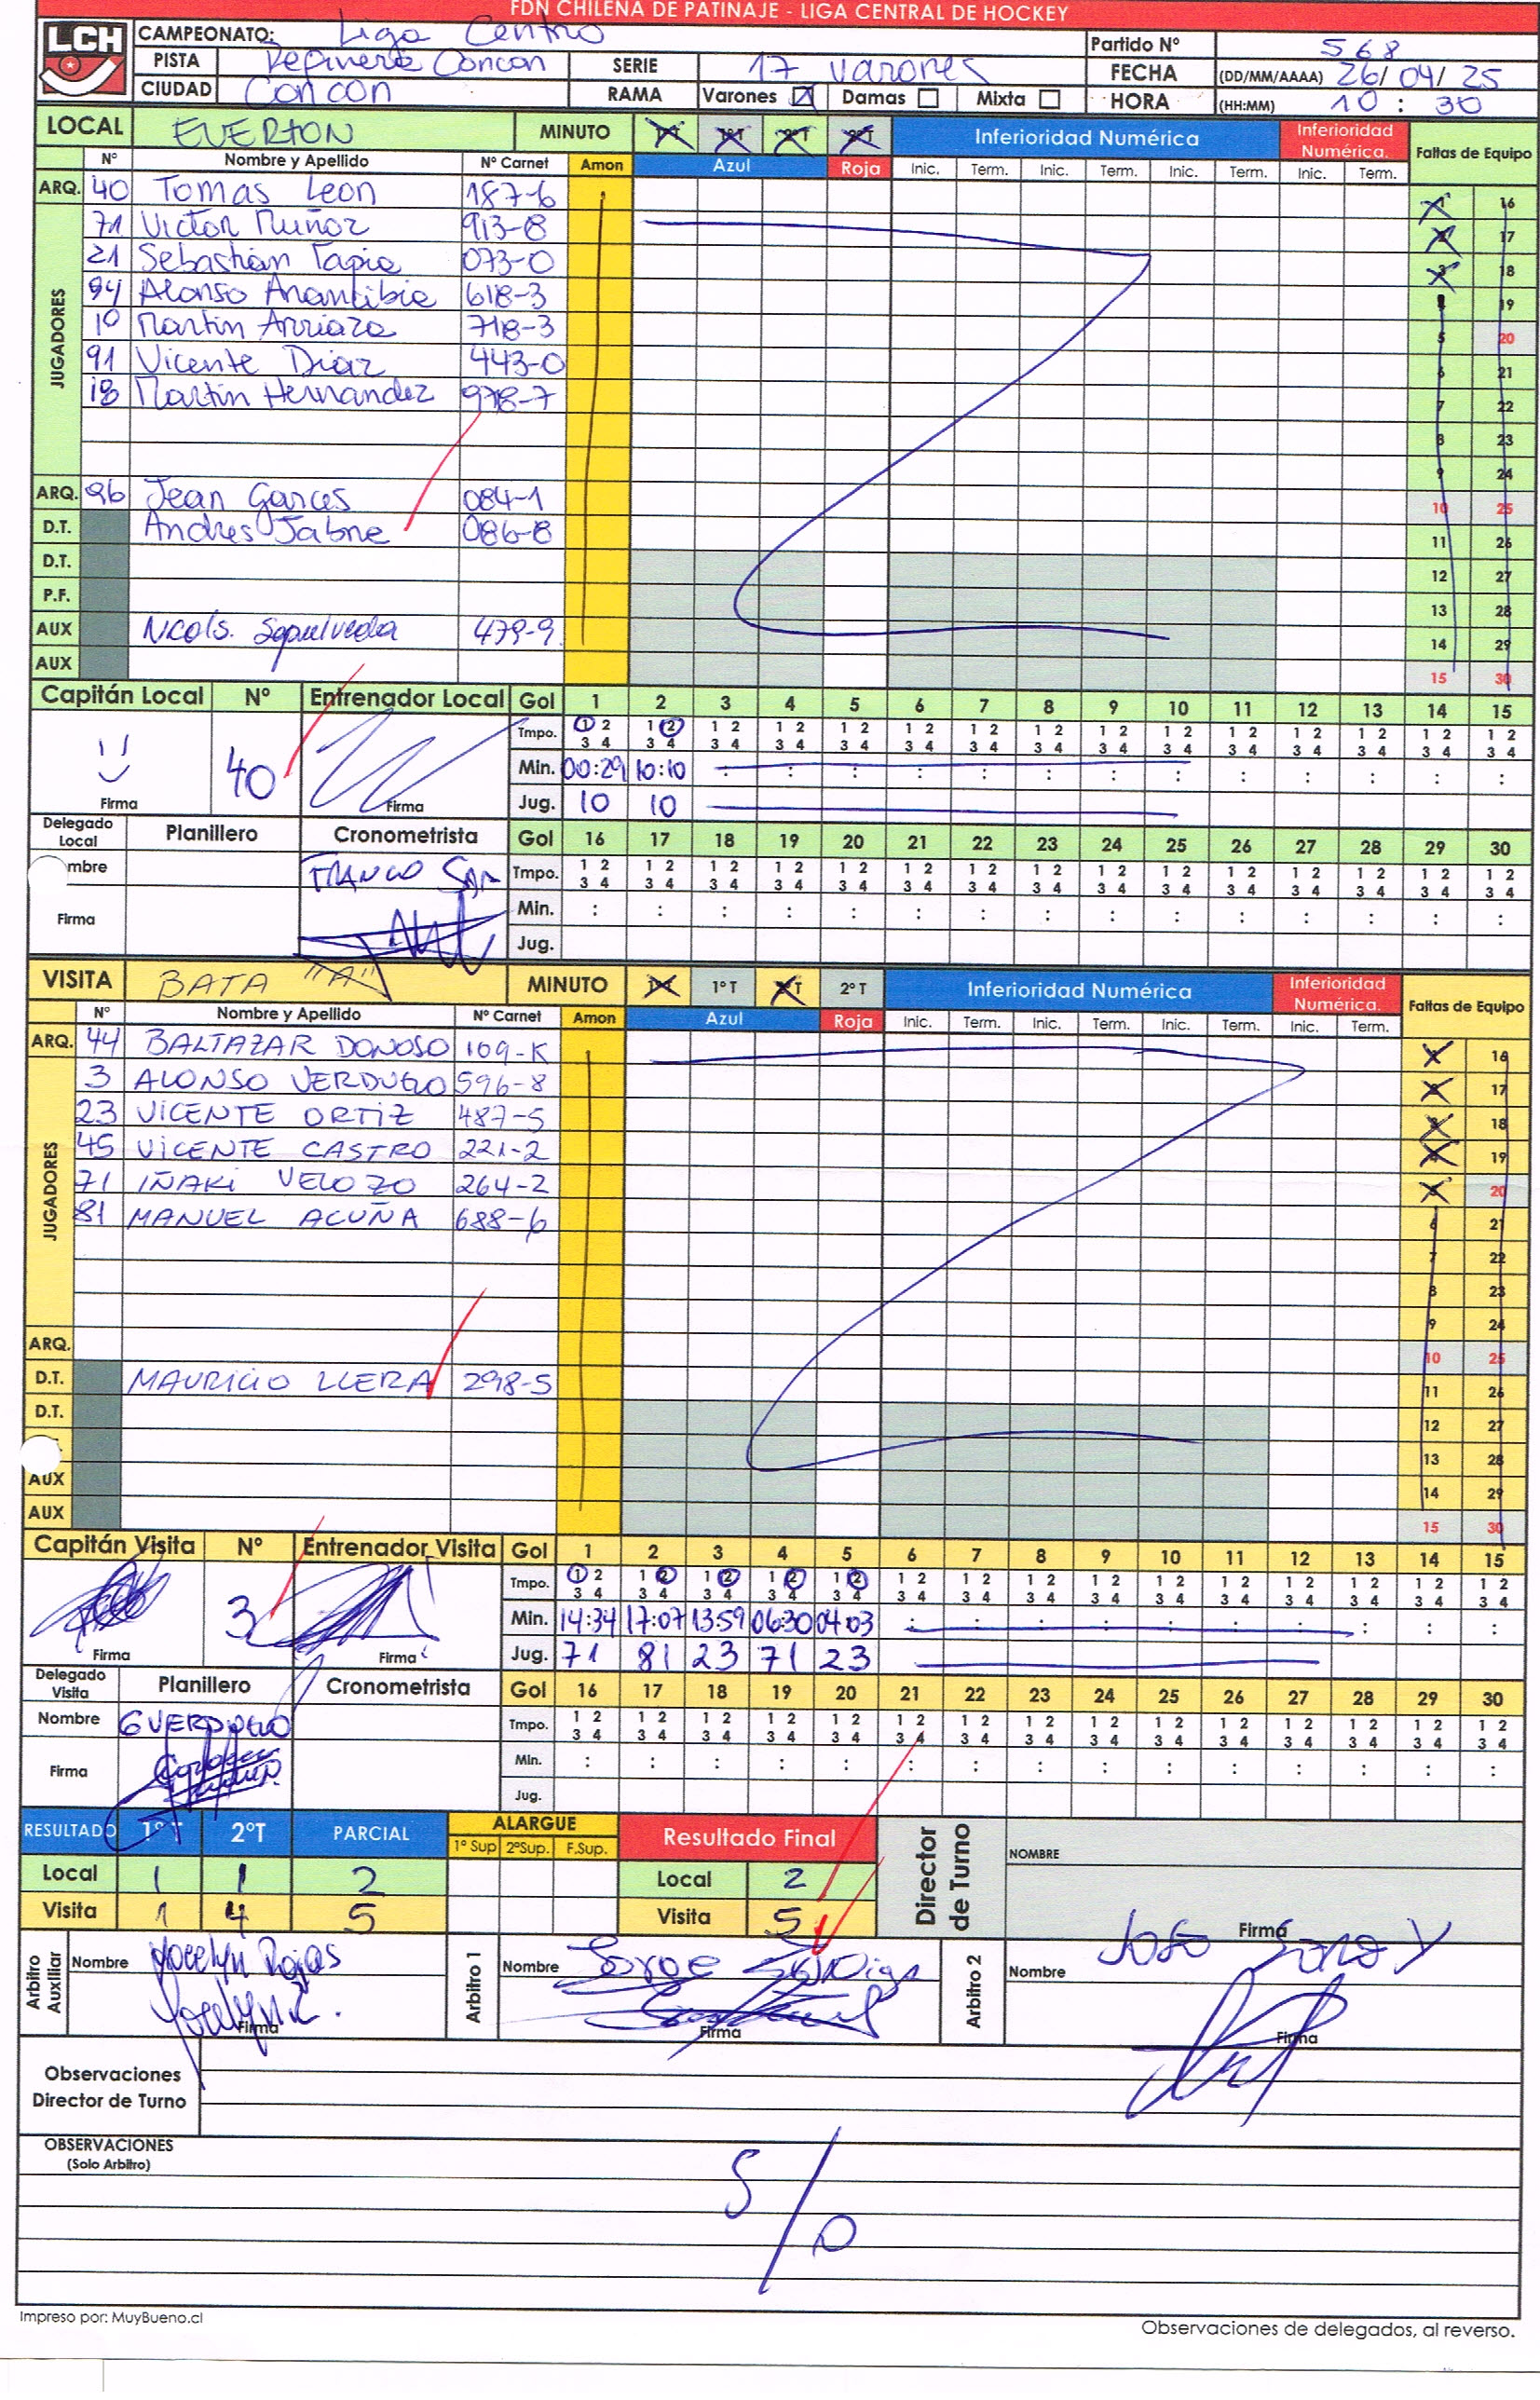 FDN CHILENA DE PATINAJE - LIGA CENTRAL DE HOCKEY
LCH
CAMPEONATO: Liga Centro
Partido Nº 568
PISTA Refineria Concon SERIE 17 Varones
FECHA (DD/MM/AAAA) 26/04/25
CIUDAD Concon RAMA Varones Damas Mixta
HORA (HH:MM) 10 : 30
LOCAL EVERTON MINUTO Inferioridad Numérica Inferioridad Numérica. Faltas de Equipo
Nº Nombre y Apellido Nº Carnet Amon Azul Roja Inic. Term. Inic. Term. Inic. Term. Inic. Term.
ARQ. 40 Tomas Leon 187-6 16
JUGADORES
71 Victor Muñoz 913-8 17
21 Sebastian Tapia 073-0 18
94 Alonso Anantibia 618-3 19
10 Martin Arriaza 718-3 5 20
91 Vicente Diaz 443-0 6 21
18 Martin Hernandez 978-7 7 22
8 23
9 24
ARQ. 96 Jean Garces 084-1 10 25
D.T. Andres Jabne 086-8 11 26
D.T. 12 27
P.F. 13 28
AUX Nicols. Sepulveda 479-9 14 29
AUX 15 30
Capitán Local Nº Entrenador Local Gol 1 2 3 4 5 6 7 8 9 10 11 12 13 14 15
Tmpo. 1 2 1 2 1 2 1 2 1 2 1 2 1 2 1 2 1 2 1 2 1 2 1 2 1 2 1 2 1 2
3 4 3 4 3 4 3 4 3 4 3 4 3 4 3 4 3 4 3 4 3 4 3 4 3 4 3 4 3 4
40 Min. 00:29 10:10 : : : : : : : : : : : : :
Firma Firma Jug. 10 10
Delegado Local Planillero Cronometrista Gol 16 17 18 19 20 21 22 23 24 25 26 27 28 29 30
mbre FRANCO Tmpo. 1 2 1 2 1 2 1 2 1 2 1 2 1 2 1 2 1 2 1 2 1 2 1 2 1 2 1 2 1 2
3 4 3 4 3 4 3 4 3 4 3 4 3 4 3 4 3 4 3 4 3 4 3 4 3 4 3 4 3 4
Firma Min. : : : : : : : : : : : : : : :
Jug.
VISITA BATA "A" MINUTO 1º T 2º T Inferioridad Numérica Inferioridad Numérica. Faltas de Equipo
Nº Nombre y Apellido Nº Carnet Amon Azul Roja Inic. Term. Inic. Term. Inic. Term. Inic. Term.
ARQ. 44 BALTAZAR DONOSO 109-K 16
JUGADORES
3 ALONSO VERDUGO 596-8 17
23 VICENTE ORTIZ 487-5 18
45 VICENTE CASTRO 221-2 19
71 IÑAKI VELOZO 264-2 20
81 MANUEL ACUÑA 688-6 6 21
7 22
8 23
9 24
ARQ. 10 25
D.T. MAURICIO LLERA 298-5 11 26
D.T. 12 27
13 28
AUX 14 29
AUX 15 30
Capitán Visita Nº Entrenador Visita Gol 1 2 3 4 5 6 7 8 9 10 11 12 13 14 15
Tmpo. 1 2 1 2 1 2 1 2 1 2 1 2 1 2 1 2 1 2 1 2 1 2 1 2 1 2 1 2 1 2
3 4 3 4 3 4 3 4 3 4 3 4 3 4 3 4 3 4 3 4 3 4 3 4 3 4 3 4 3 4
3 Min. 14:34 17:07 13:59 06:30 04:03 : : : : : : : : : :
Firma Firma Jug. 71 81 23 71 23
Delegado Visita Planillero Cronometrista Gol 16 17 18 19 20 21 22 23 24 25 26 27 28 29 30
Nombre G VERDUGO Tmpo. 1 2 1 2 1 2 1 2 1 2 1 2 1 2 1 2 1 2 1 2 1 2 1 2 1 2 1 2 1 2
3 4 3 4 3 4 3 4 3 4 3 4 3 4 3 4 3 4 3 4 3 4 3 4 3 4 3 4 3 4
Firma Min. : : : : : : : : : : : : : : :
Jug.
RESULTADO 1ºT 2ºT PARCIAL ALARGUE Resultado Final Director de Turno NOMBRE
1º Sup 2ºSup. F.Sup.
Local 1 1 2 Local 2
Visita 1 4 5 Visita 5 Firma
Arbitro Auxiliar Nombre Jocelyn Rojas Arbitro 1 Nombre Jorge Arbitro 2 Nombre José
Jocelyn R.
Firma Firma Firma
Observaciones
Director de Turno
OBSERVACIONES
(Solo Arbitro)
S/O
Impreso por: MuyBueno.cl
Observaciones de delegados, al reverso.